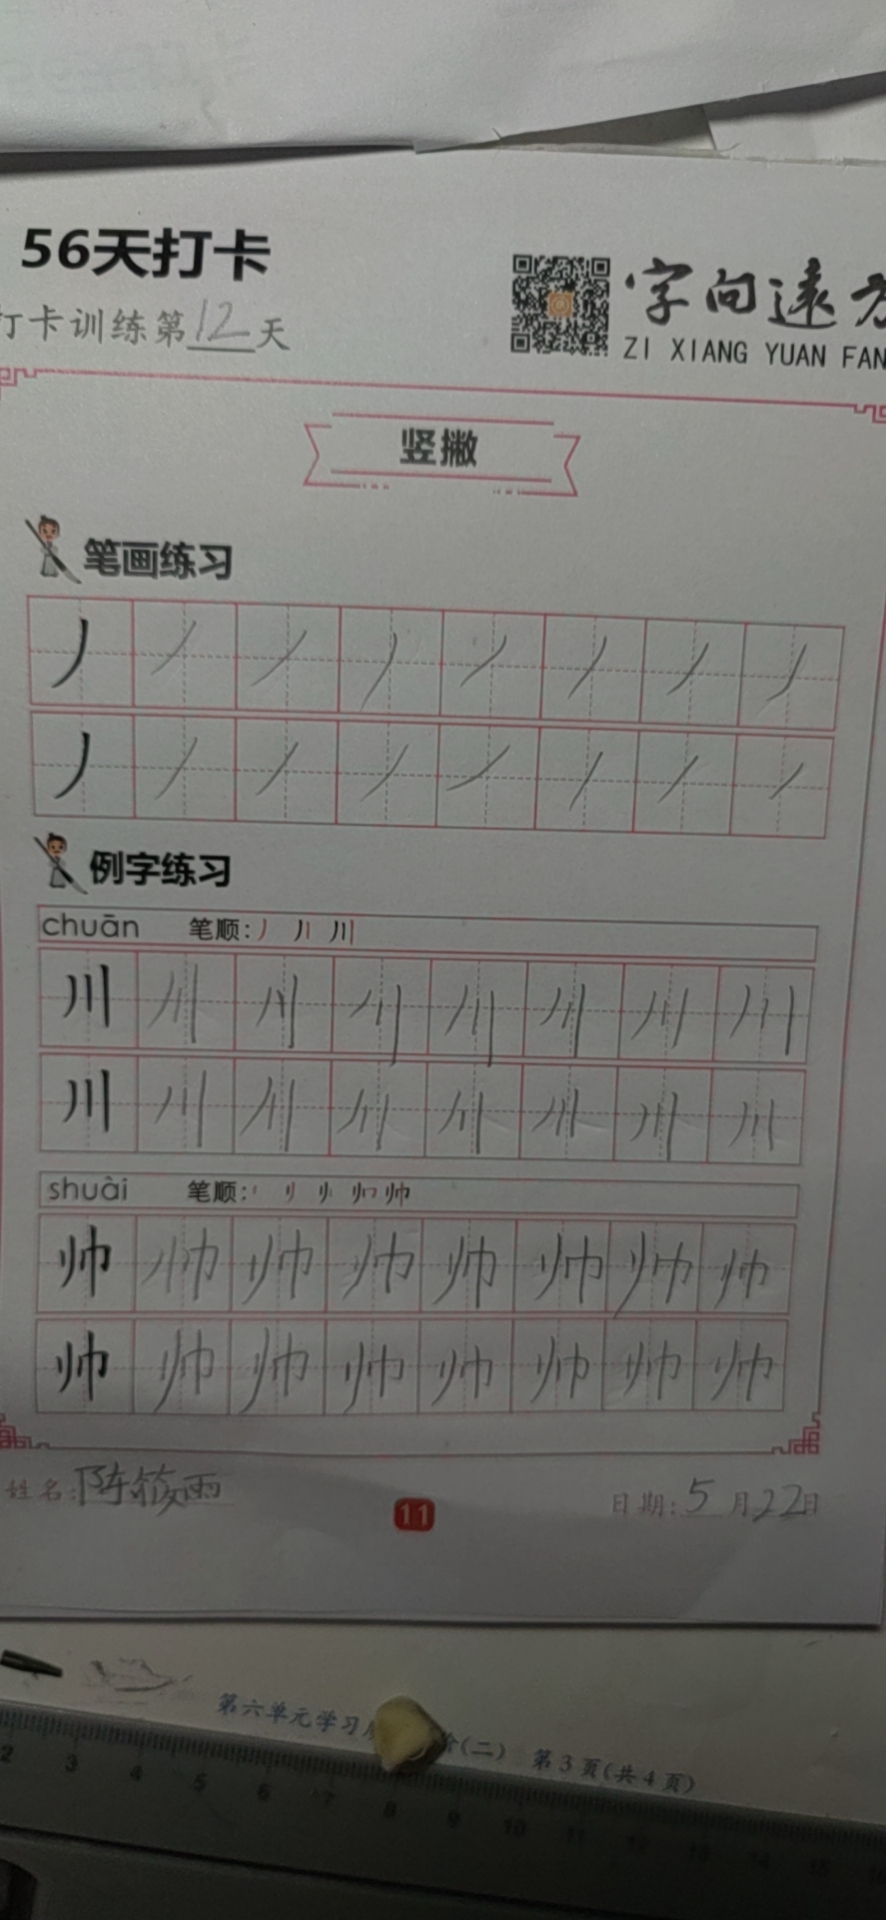 56天打卡
打卡训练第12天
字向遠方
ZI XIANG YUAN FAN
竖撇
笔画练习
丿 丿 丿 丿 丿 丿 丿 丿
丿 丿 丿 丿 丿 丿 丿 丿
例字练习
chuān 笔顺: 丿 丿丨 川
川 川 川 川 川 川 川 川
川 川 川 川 川 川 川 川
shuài 笔顺: 帅
帅 帅 帅 帅 帅 帅 帅 帅
帅 帅 帅 帅 帅 帅 帅 帅
姓名:陈筱雨
11
日期:5月22日
第六单元学习 (二) 第3页(共4页)
2 3 4 5 6 7 8 9 10 11 12 13 14 15